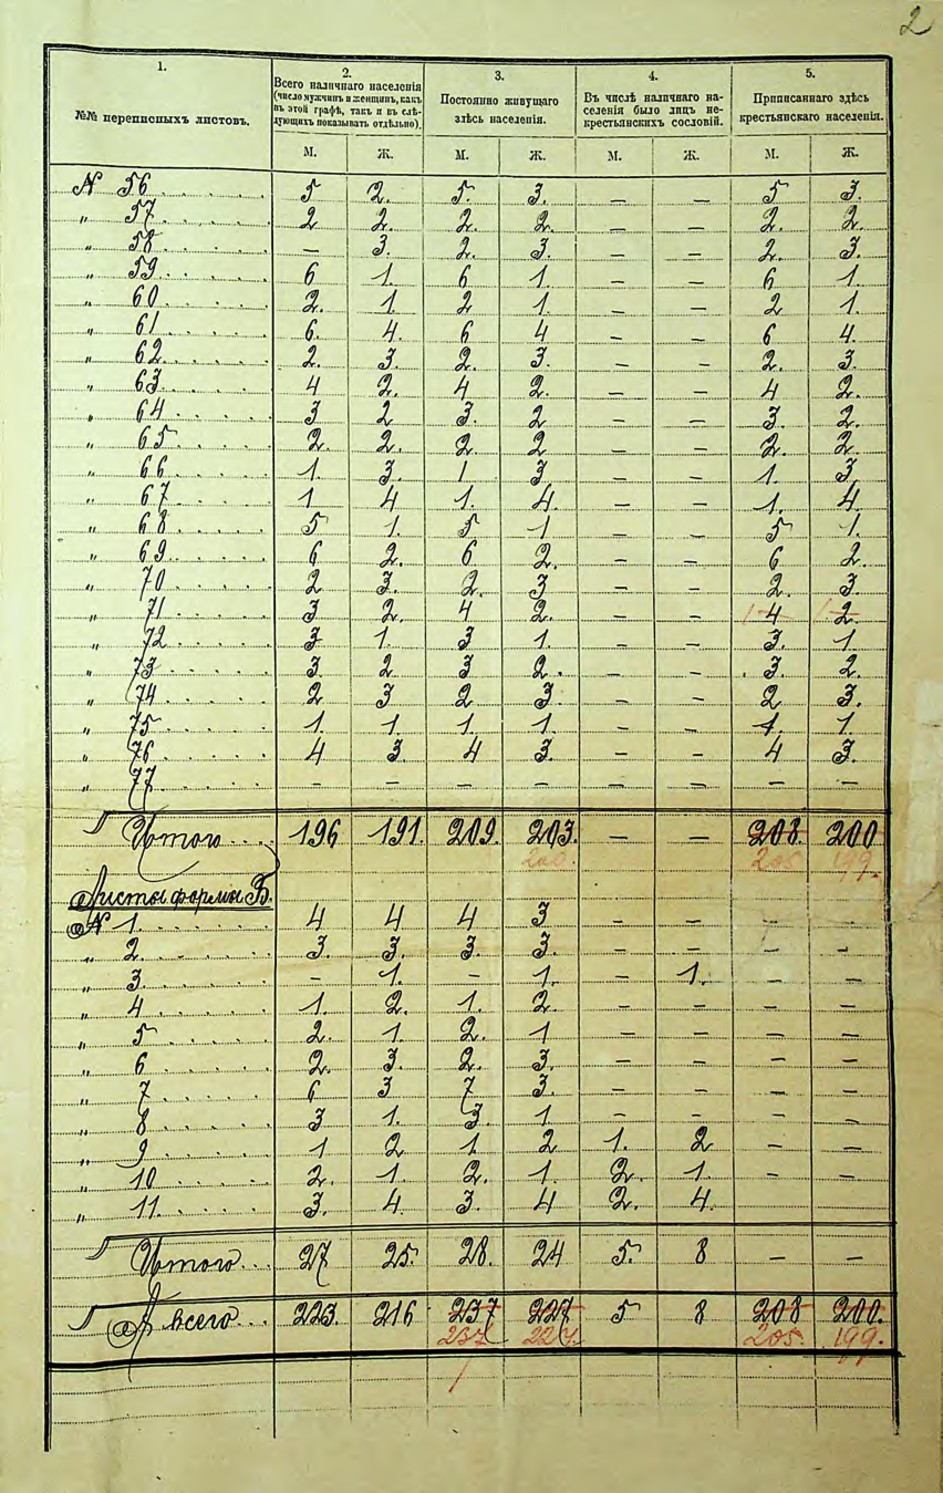 2
1. 2. 3. 4. 5.
№№ переписныхъ листовъ.
Всего наличнаго населенія
(число мужчинъ и женщинъ, какъ
въ этой графѣ, такъ и въ слѣ-
дующихъ показывать отдѣльно).
Постоянно живущаго
здѣсь населенія.
Въ числѣ наличнаго на-
селенія было лицъ не-
крестьянскихъ сословій.
Приписаннаго здѣсь
крестьянскаго населенія.
М. Ж. М. Ж. М. Ж. М. Ж.
N 56 5 2. 5. 3. — — 5 3.
" 57 2 2. 2. 2. — — 2. 2.
" 58 — 3. 2. 3. — — 2. 3.
" 59 6 1. 6 1. — — 6 1.
" 60 2. 1. 2 1. — — 2 1.
" 61 6. 4. 6 4 — — 6 4.
" 62 2. 3. 2. 3. — — 2. 3.
" 63 4 2. 4 2. — — 4 2.
" 64 3 2 3. 2 — — 3. 2.
" 65 2. 2. 2. 2 — — 2. 2.
" 66 1. 3. 1 3 — — 1. 3
" 67 1 4 1. 4. — — 1. 4.
" 68 5 1. 5 1 — — 5 1.
" 69 6 2. 6 2. — — 6 2.
" 70 2 3. 2. 3 — — 2. 3.
" 71 3 2. 4 2. — — 4 2.
" 72 3 1. 3 1. — — 3. 1
" 73 3. 2 3 2. — — 3. 2.
" 74 2 3 2 3. — — 2 3.
" 75 1. 1. 1. 1. — — 1. 1.
" 76 4 3. 4 3. — — 4 3.
" 77 — — — — — — — —
Итого 196 191. 209. 203. — — 208. 200
200. 205 199.
Листы формы Б.
N 1. 4 4 4 3 — — — —
" 2. 3. 3. 3. 3. — — — —
" 3. — 1. — 1. — 1. — —
" 4 1. 2. 1. 2. — — — —
" 5 2. 1. 2. 1 — — — —
" 6 2. 3. 2. 3. — — — —
" 7 6 3 7 3. — — — —
" 8 3 1. 3. 1. — — — —
" 9 1 2 1. 2 1. 2 — —
" 10 2. 1. 2. 1. 2. 1. — —
" 11. 3. 4. 3. 4 2. 4.
Итого 27 25. 28. 24 5. 8 — —
А всего 223. 216 237 227 5 8 208 200.
237 227. 205. 199.